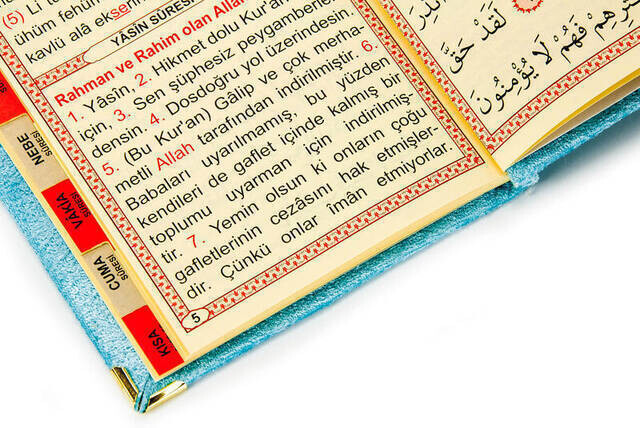 (5) Li t
ühüm fehüm
kavlü alâ ekseri
YÂSÎN SÛRESİ
Rahman ve Rahim olan Allah
1. Yâsîn, 2. Hikmet dolu Kur'an
için, 3. Sen şüphesiz peygamberler-
densin. 4. Dosdoğru yol üzerindesin.
5. (Bu Kur'an) Gâlip ve çok merha-
metli Allah tarafından indirilmiştir. 6.
Babaları uyarılmamış, bu yüzden
kendileri de gaflet içinde kalmış bir
toplumu uyarman için indirilmiş-
tir. 7. Yemin olsun ki onların çoğu
gafletlerinin cezâsını hak etmişler-
dir. Çünkü onlar imân etmiyorlar.
5
NEBE
SÛRESİ
VÂKIA
SÛRESİ
CUMA
SÛRESİ
KISA
لَقَدْ حَقَّ
فَهُمْ لَا يُؤْمِنُونَ